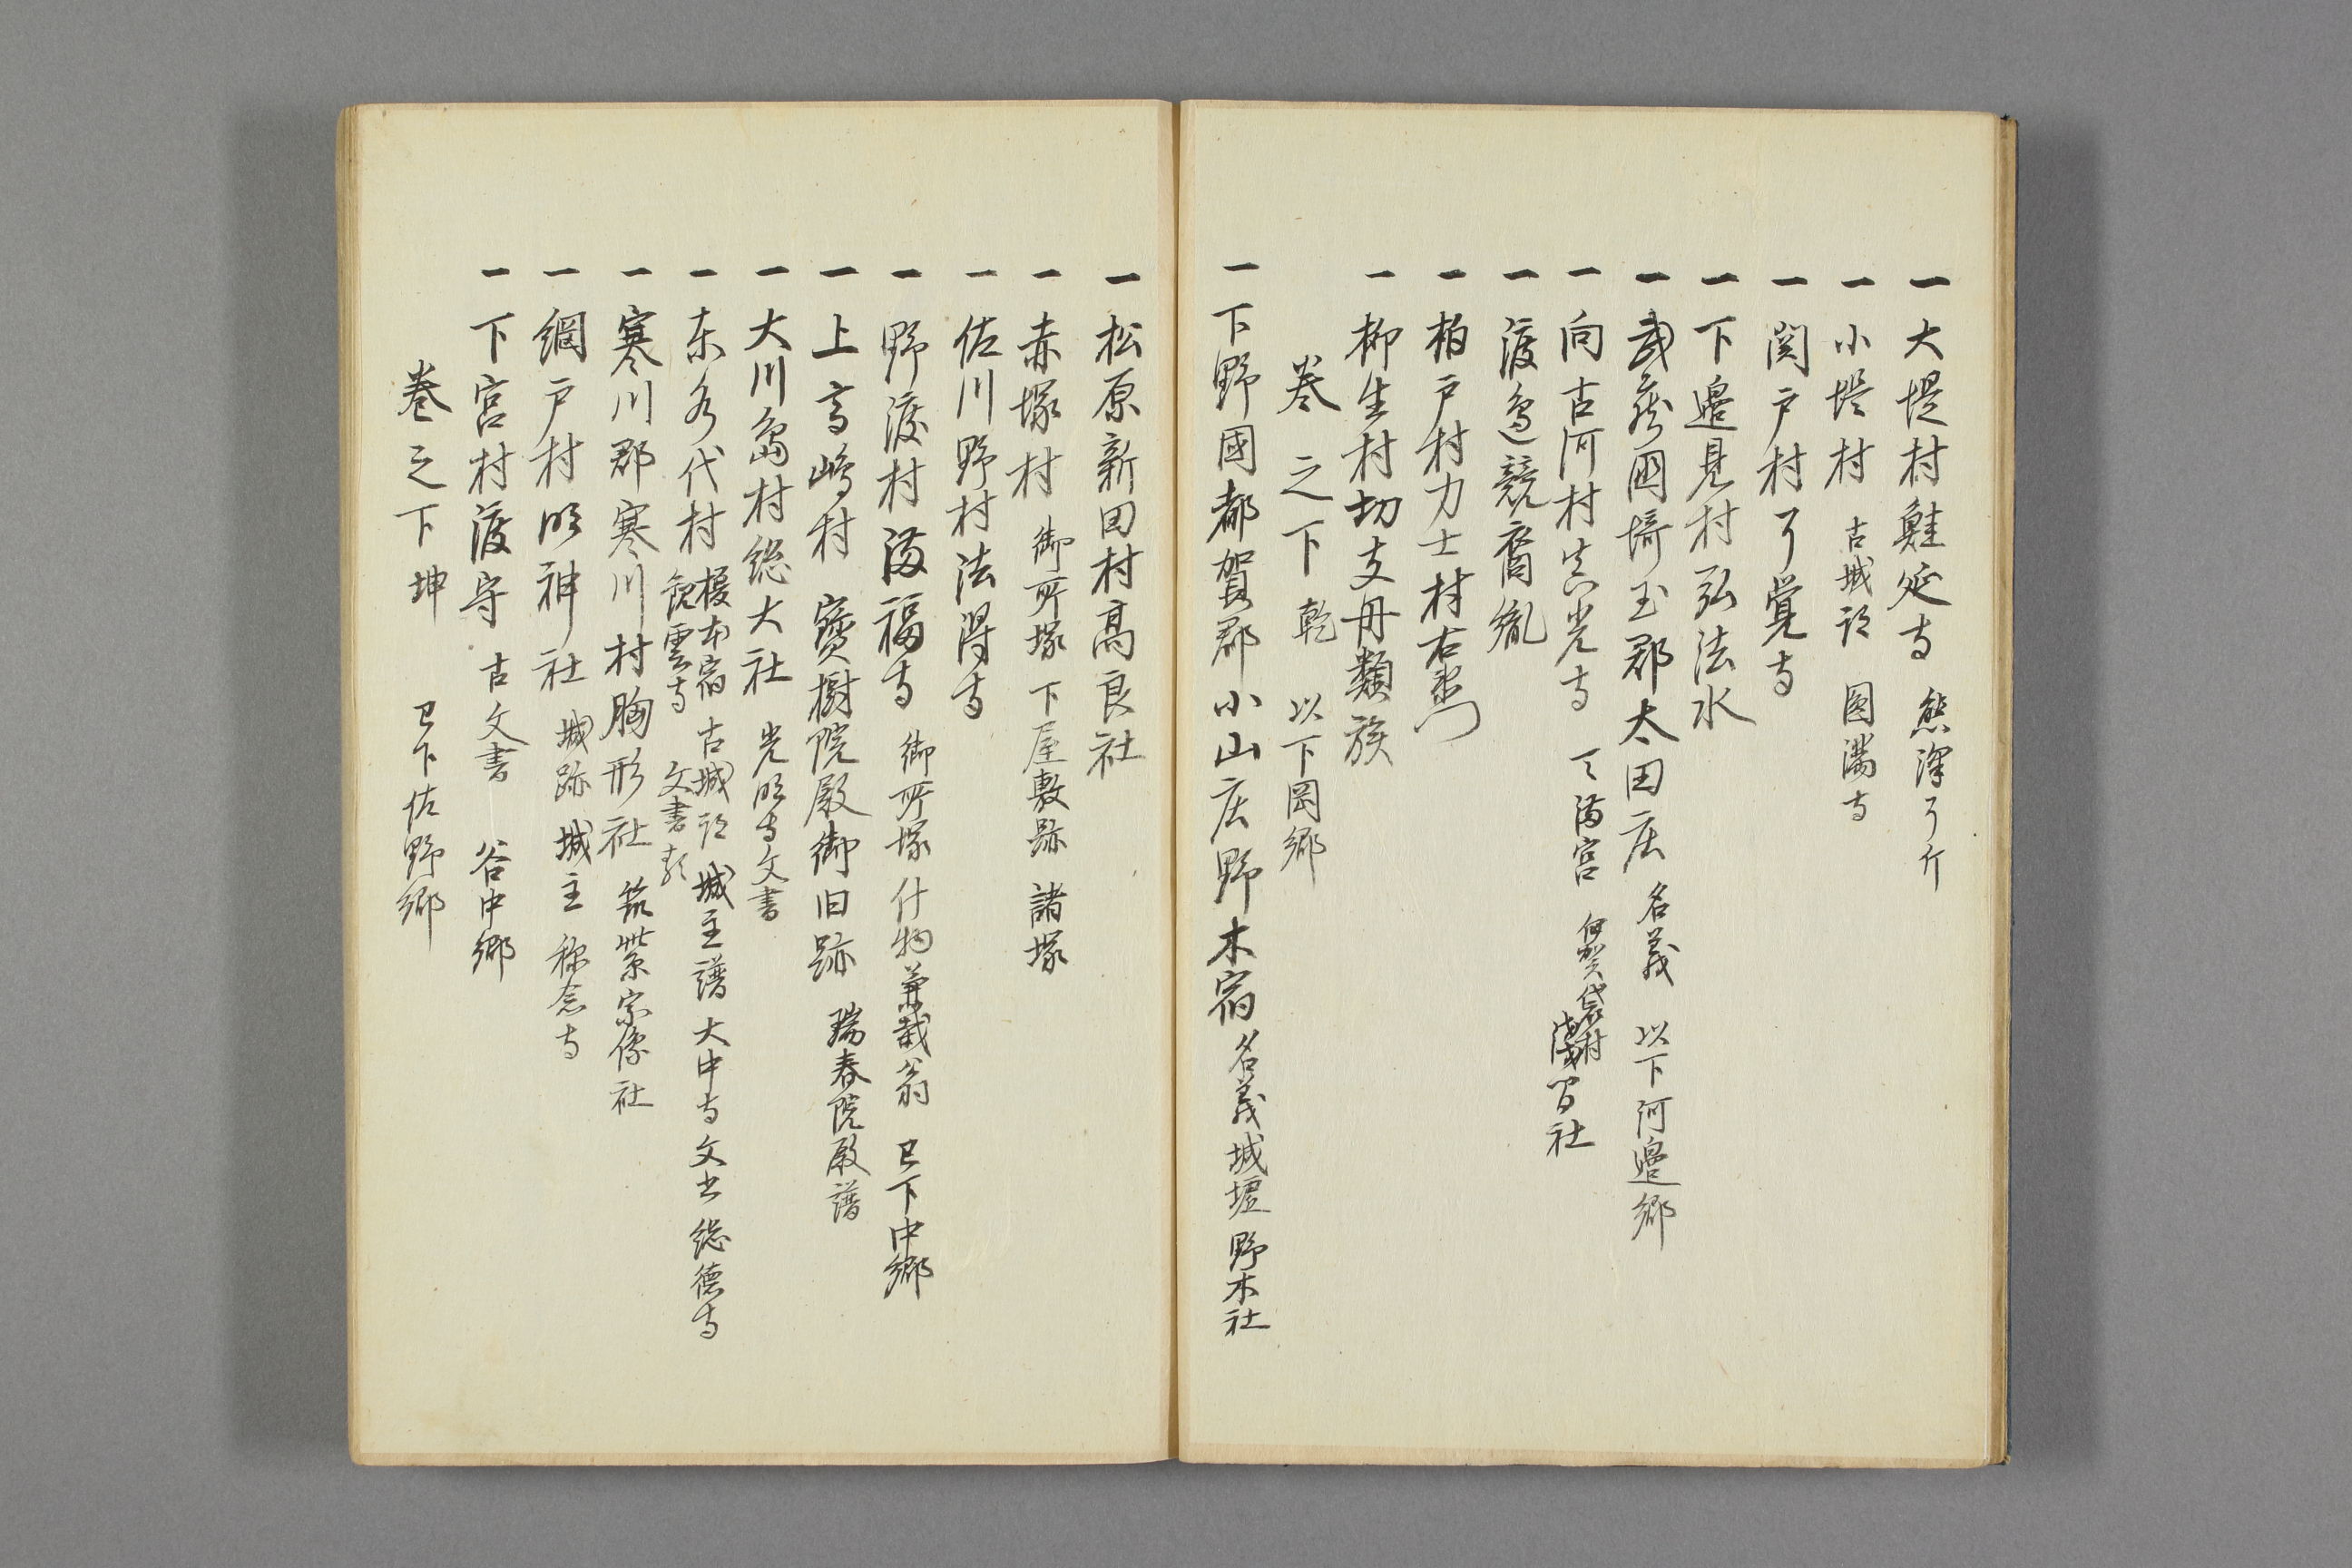 一 大堤村鮭延寺 熊澤了介
一 小堤村 古城跡 圓満寺
一 関戸村了覚寺
一 下邉見村弘法水
一 武蔵國埼玉郡太田庄 名義 以下河邉郷
一 向古河村真光寺 天満宮 伊賀袋村浅間社
一 渡邉競裔胤
一 柏戸村力士村右衛門
一 柳生村切支丹類族
巻之下 乾 以下岡郷
一 下野國都賀郡小山庄野木宿 名義 城墟 野木社
一 松原新田村高良社
一 赤塚村 御所塚 下屋敷跡 諸塚
一 佐川野村法得寺
一 野渡村満福寺 御所塚 什物 兼載翁 已下中郷
一 上高嶋村 寳樹院殿御旧跡 瑞春院殿譜
一 大川島村総大社 光明寺文書
一 東水代村 榎本宿 古城跡 城主譜 大中寺文书 総徳寺
観雲寺 文書类
一 寒川郡寒川村胸形社 筑紫宗像社
一 網戸村明神社 城跡 城主 称念寺
一 下宮村渡守 古文書 谷中郷
巻之下坤 已下佐野郷